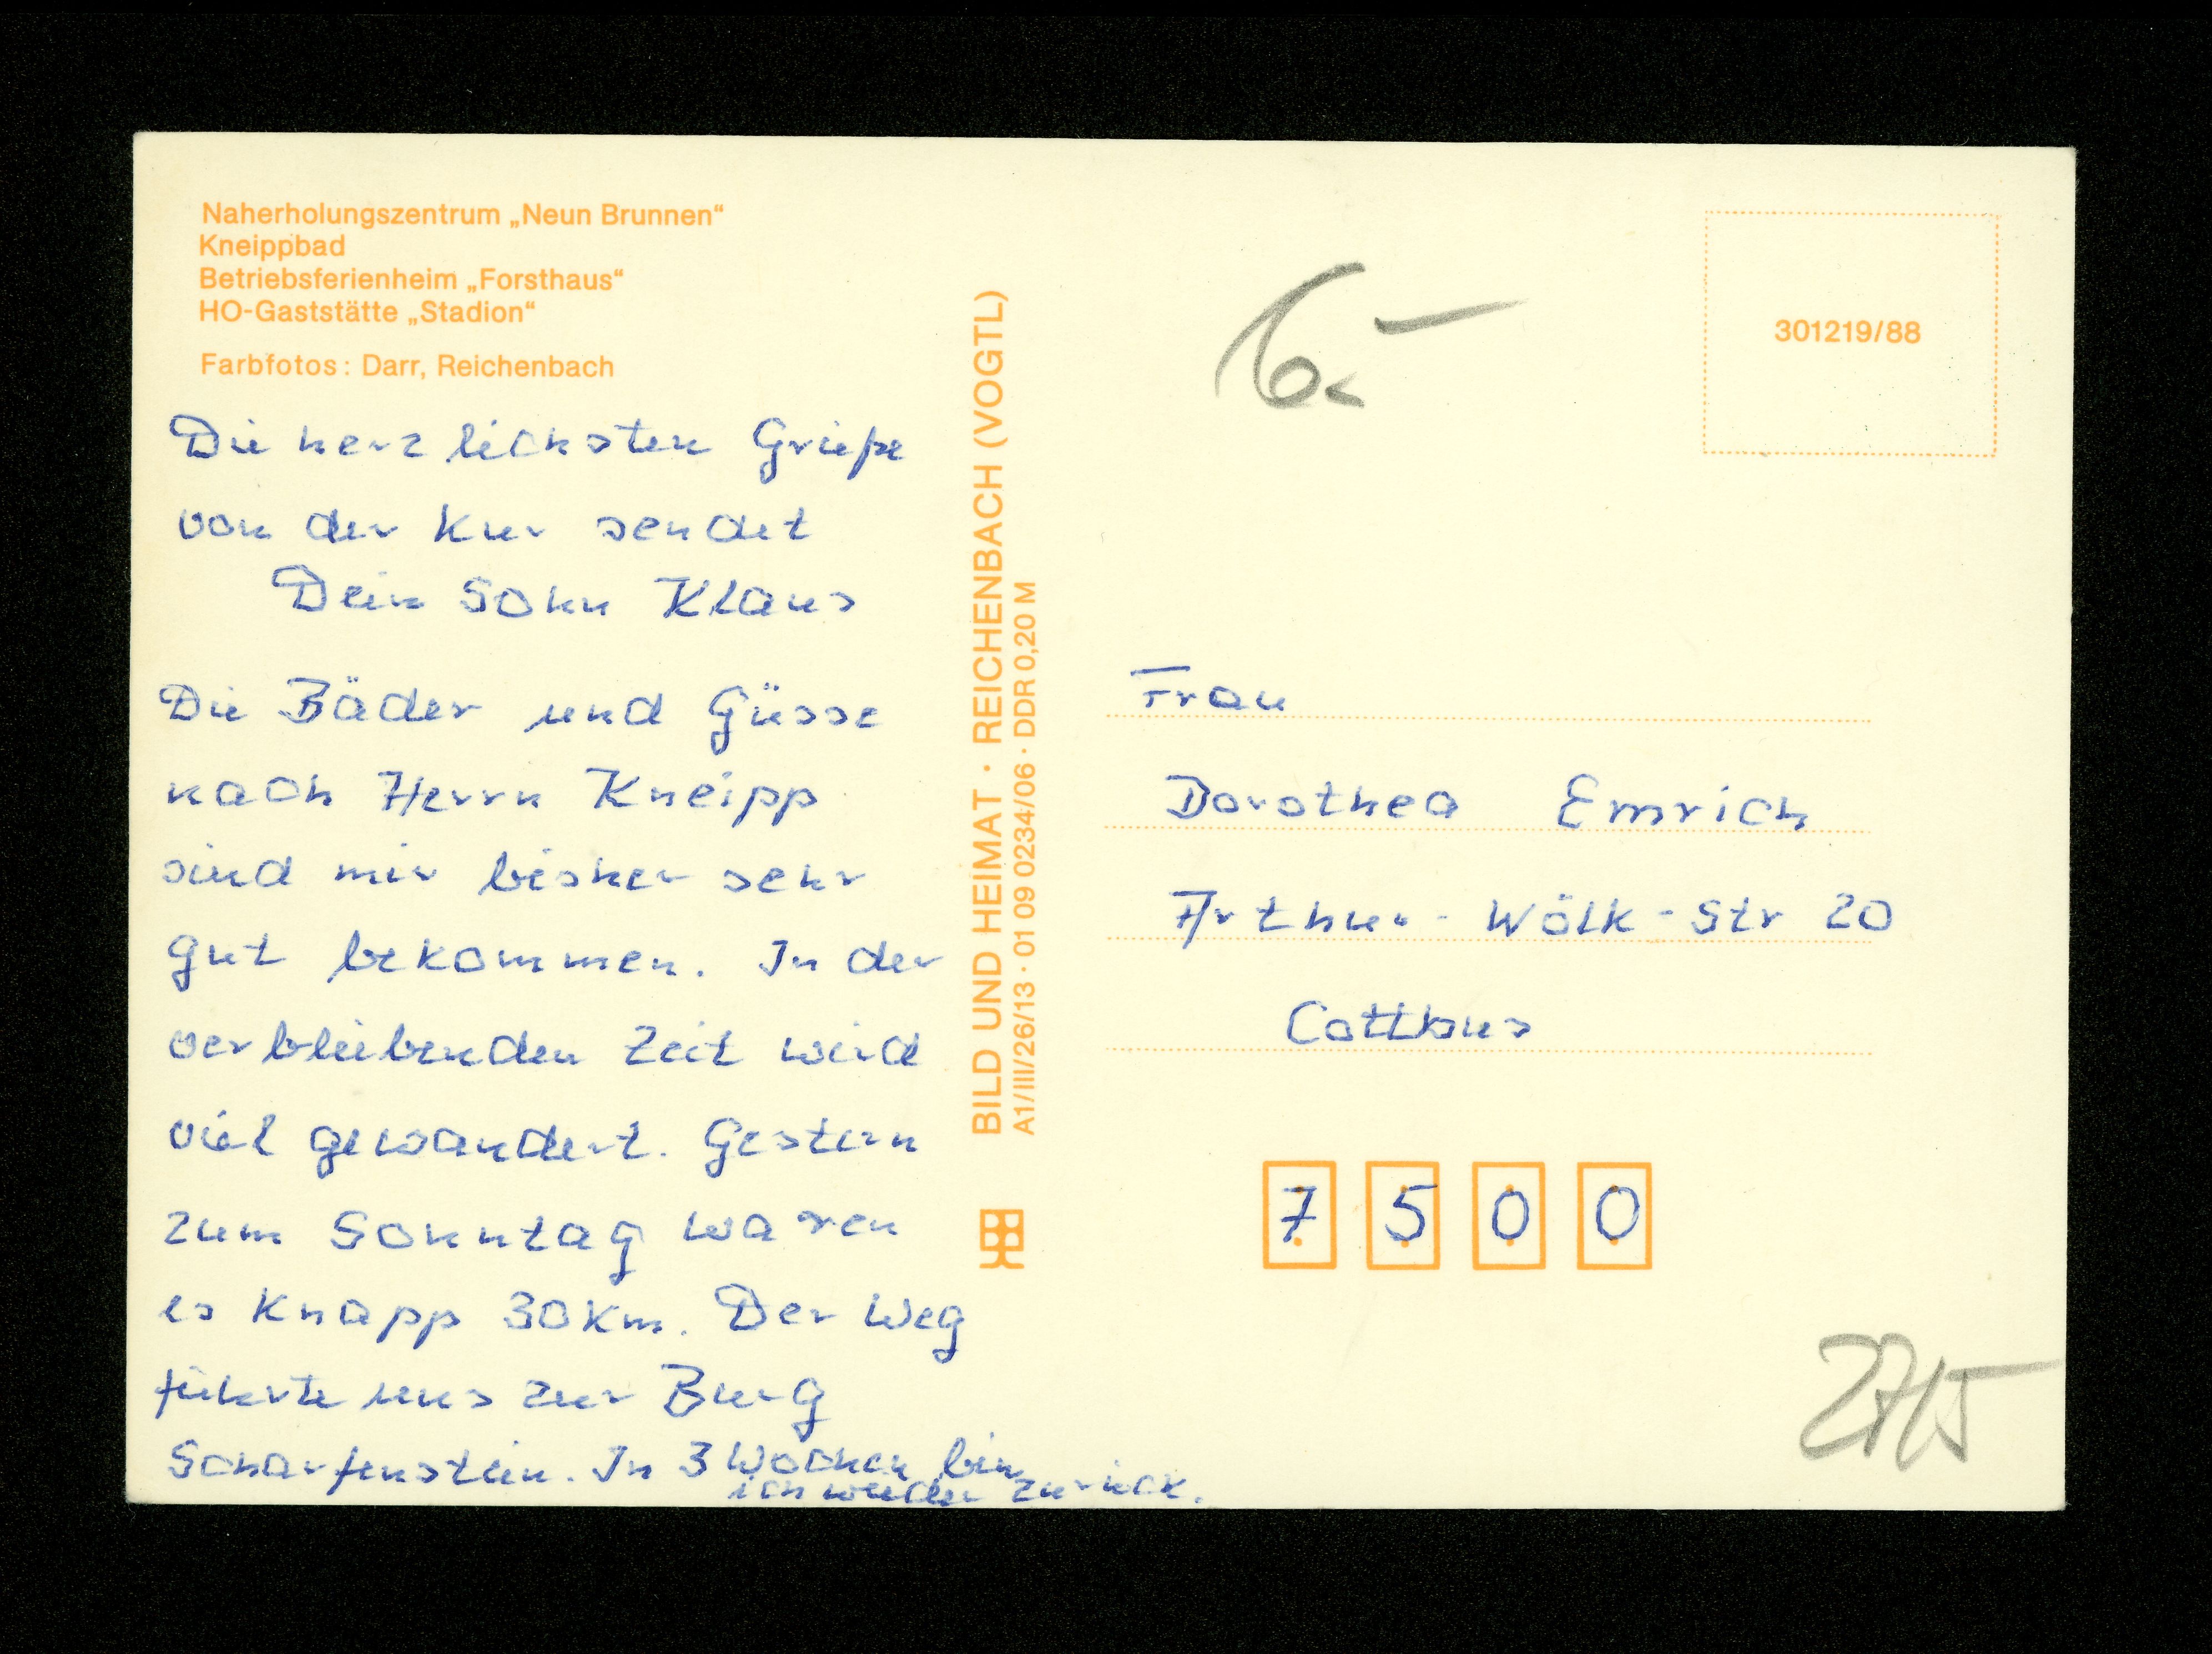 Naherholungszentrum „Neun Brunnen“
Kneippbad
Betriebsferienheim „Forsthaus“
HO-Gaststätte „Stadion“
Farbfotos: Darr, Reichenbach
Die herzlichsten Grüße
von der Kur sendet
Dein Sohn Klaus
Die Bäder und Güsse
nach Herrn Kneipp
sind mir bisher sehr
gut bekommen. In der
verbleibenden Zeit wird
viel gewandert. Gestern
zum Sonntag waren
es knapp 30km. Der Weg
führte uns zur Burg
Scharfenstein. In 3 Wochen bin
ich wieder zurück.
BILD UND HEIMAT · REICHENBACH (VOGTL)
A1/III/26/13 · 01 09 0234/06 · DDR 0,20 M
6,-
301219/88
Frau
Dorothea Emrich
Arthur-Wölk-Str 20
Cottbus
7500
27/5